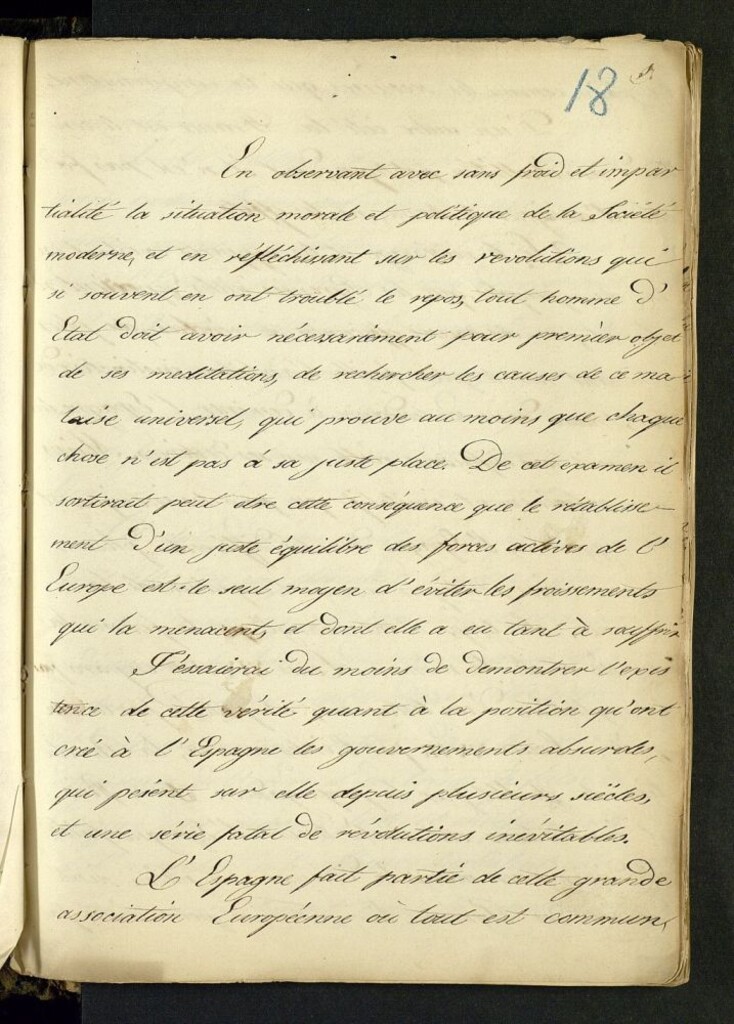 18
En observant avec sans froid et impar
tialité la situation morale et politique de la Société
moderne, et en réfléchissant sur les revolutions qui
si souvent en ont troublé le repos, tout homme d'
Etat doit avoir nécessariément pour premièr objet
de ses meditations, de rechercher les causes de ce ma
laise universel, qui prouve au moins que chaque
chose n'est pas á sa juste place. De cet examen il
sortirait peut etre cette conséquence que le rétablisse-
ment d'un juste équilibre des forces actives de l'
Europe est le seul moyen d'éviter les froissements
qui la menacent, et dont elle a eu tant à souffrir
J'essaierai du moins de demontrer l'exis
tence de cette vérité quant à la position qu'ont
creé à l'Espagne les gouvernements absurdes,
qui pesent sur elle depuis plusieurs siècles,
et une série fatal de révolutions inévitables.
L'Espagne fait partie de cette grande
association Européenne où tout est commun,